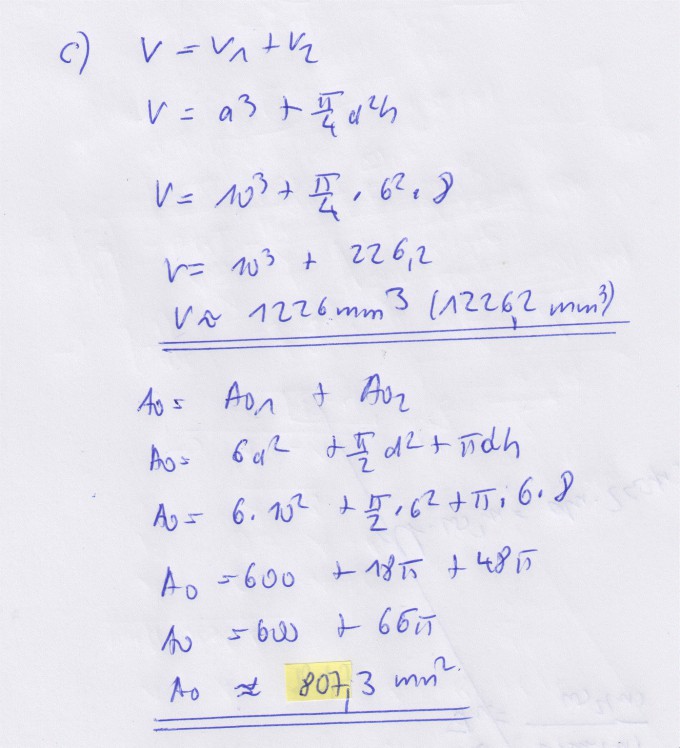 c) V = V₁ + V₂
V = a³ + π/4 d²h
V = 10³ + π/4 · 6² · 8
V = 10³ + 226,2
V ≈ 1226 mm³ (1226,2 mm³)
A₀ = A₀,₁ + A₀₂
A₀ = 6a² + π/2 d² + πdh
A₀ = 6 · 10² + π/2 · 6² + π · 6 · 8
A₀ = 600 + 18π + 48π
A₀ = 600 + 66π
A₀ ≈ 807,3 mm²